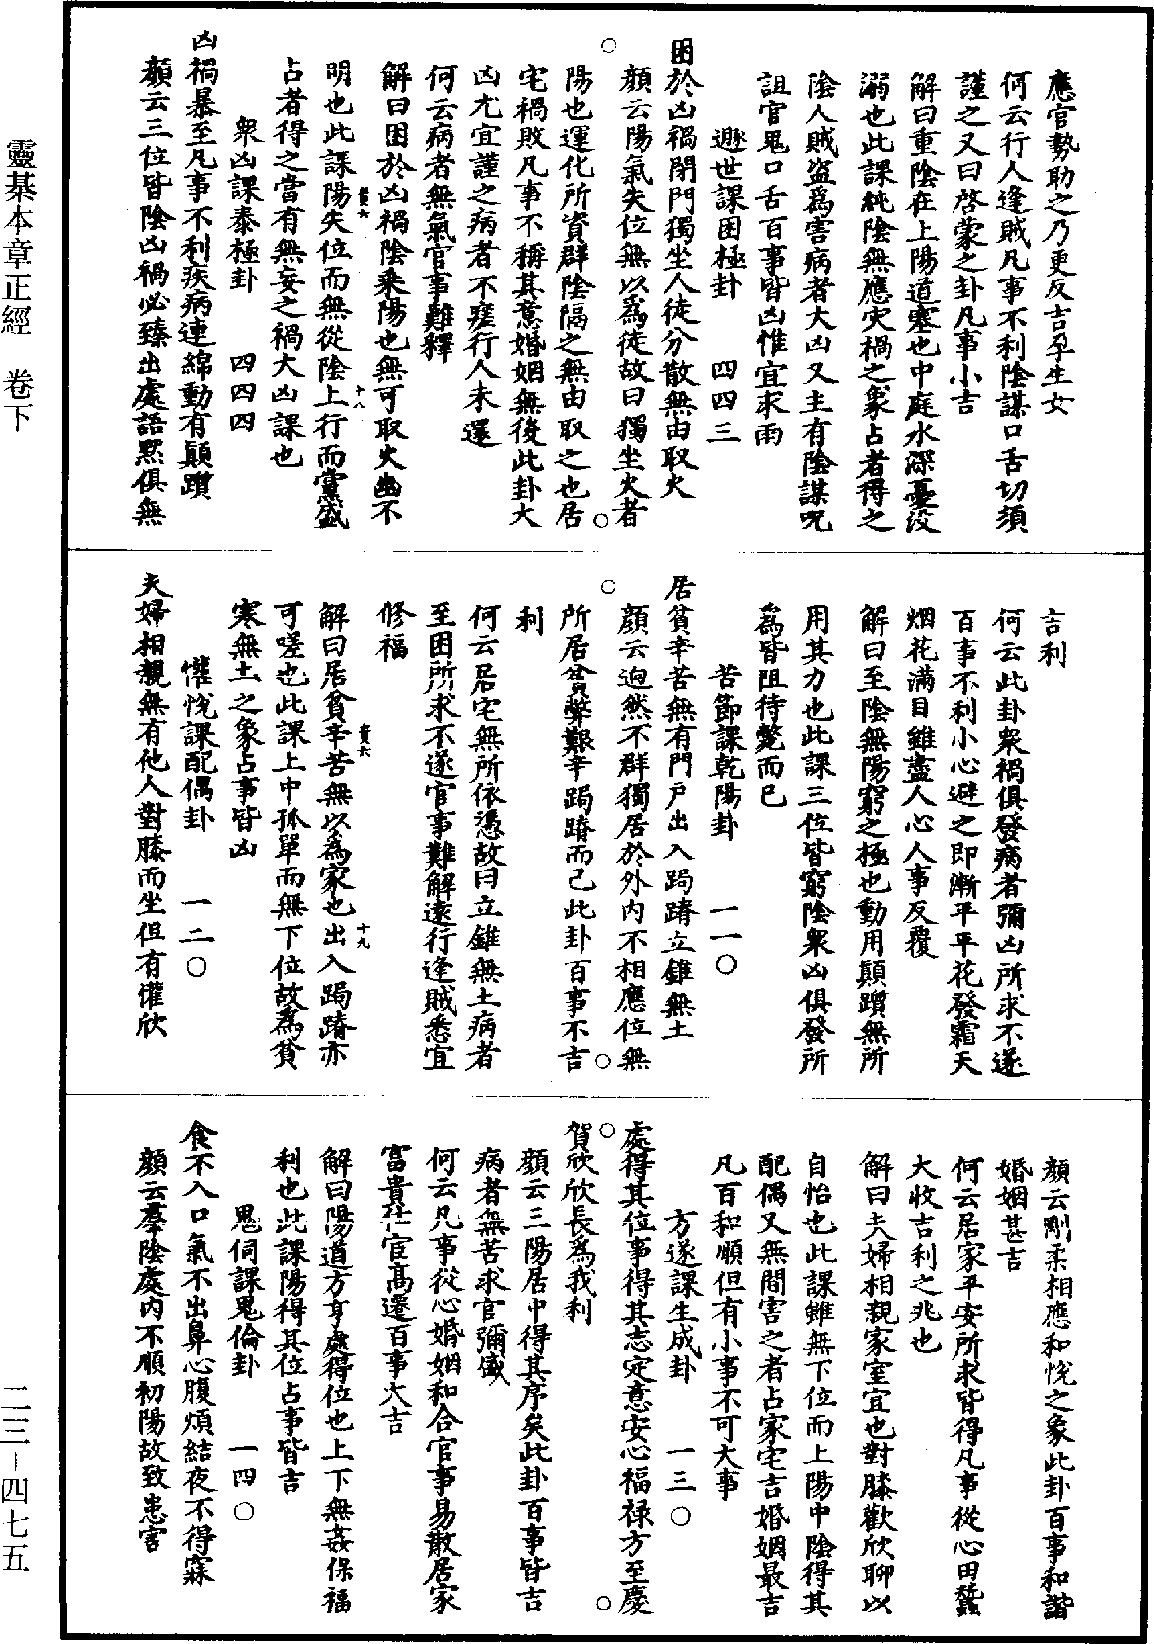 應官勢助之乃更反吉孕生女
何云行人逢賊凡事不利陰謀口舌切須
謹之又曰啓蒙之卦凡事小吉
解曰重陰在上陽道塞也中庭水深憂没
溺也此課純陰無應灾禍之象占者得之
陰人賊盗爲害病者大凶又主有陰謀呪
詛官鬼口舌百事皆凶惟宜求雨
遯世課困極卦　四四三
困於凶禍閉門獨坐人徒分散無由取火
顔云陽氣失位無以爲徒故曰獨坐火者
陽也運化所資群陰隔之無由取之也居
宅禍敗凡事不稱其意婚姻無後此卦大
凶尤宜謹之病者不瘥行人未還
何云病者無氣官事難釋
解曰困於凶禍陰乘陽也無可取火幽不
明也此課陽失位而無從陰上行而黨盛
占者得之當有無妄之禍大凶課也
衆凶課泰極卦　四四四
凶禍暴至凡事不利疾病連綿動有顛躓
顔云三位皆陰凶禍必臻出處語默俱無
吉利
何云此卦衆禍俱發病者彌凶所求不遂
百事不利小心避之即漸平平花發霜天
烟花滿目雖盡人心人事反覆
解曰至陰無陽窮之極也動用顛躓無所
用其力也此課三位皆窮陰衆凶俱發所
爲皆阻待斃而已
苦節課乾陽卦　一一〇
居貧辛苦無有門戸出入跼蹐立錐無土
顔云迥然不群獨居於外内不相應位無
所居貧弊艱辛跼蹐而已此卦百事不吉
利
何云居宅無所依憑故曰立錐無土病者
至困所求不遂官事難解遠行逢賊悉宜
修福
解曰居貧辛苦無以爲家也出入跼蹐亦
可嗟也此課上中孤單而無下位故爲貧
寒無土之象占事皆凶
懽悅課配偶卦　一二〇
夫婦相親無有他人對膝而坐但有懽欣
顔云剛柔相應和悅之象此卦百事和諧
婚姻甚吉
何云居家平安所求皆得凡事從心田蠶
大收吉利之兆也
解曰夫婦相親家室宜也對膝歡欣聊以
自怡也此課雖無下位而上陽中陰得其
配偶又無間害之者占家宅吉婚姻最吉
凡百和順但有小事不可大事
方遂課生成卦　一三〇
處得其位事得其志定意安心福禄方至慶
賀欣欣長爲我利
顔云三陽居中得其序矣此卦百事皆吉
病者無苦求官彌盛
何云凡事從心婚姻和合官事易散居家
富貴仕宦高遷百事大吉
解曰陽道方亨處得位也上下無姦保福
利也此課陽得其位占事皆吉
鬼伺課鬼倫卦　一四〇
食不入口氣不出鼻心腹煩結夜不得寐
顔云羣陰處内不順初陽故致患害
靈棊本章正經　卷下
二三-四七五